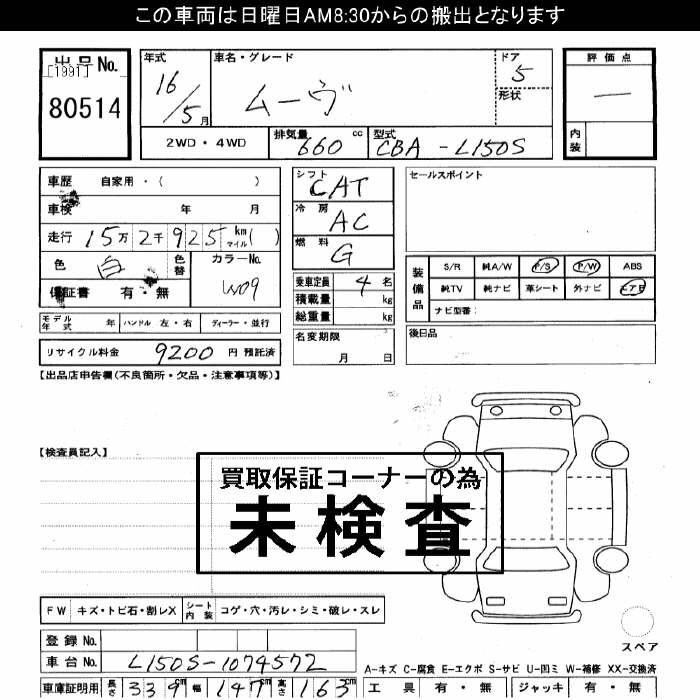 この車両は日曜日AM8:30からの搬出となります
出品No.
[1991]
80514
年式
16/5月
車名・グレード
ムーヴ
ドア
5
形状
評価点
—
内装
2WD・4WD
排気量 660 cc
型式 CBA-L150S
車歴 自家用・( )
車検 年 月
走行 15万2千925 km マイル( )
色 白 色替
カラーNo. W09
保証書 有・無
モデル年式 年 ハンドル 左・右 ディーラー・並行
リサイクル料金 9200 円 預託済
シフト CAT
冷房 AC
燃料 G
乗車定員 4 名
積載量 kg
総重量 kg
名変期限
月 日
セールスポイント
装備品
S/R 純A/W P/S P/W ABS
純TV 純ナビ 革シート 外ナビ エアB
ナビ型番:
後日品
【出品店申告欄(不良箇所・欠品・注意事項等)】
【検査員記入】
買取保証コーナーの為
未検査
FW キズ・トビ石・割レX シート内装 コゲ・穴・汚レ・シミ・破レ・スレ
登録No.
車台No. L150S-1074572
車庫証明用 長さ 339cm 幅 147cm 高さ 163cm
スペア
A-キズ C-腐食 E-エクボ S-サビ U-凹ミ W-補修 XX-交換済
工具 有・無 ジャッキ 有・無